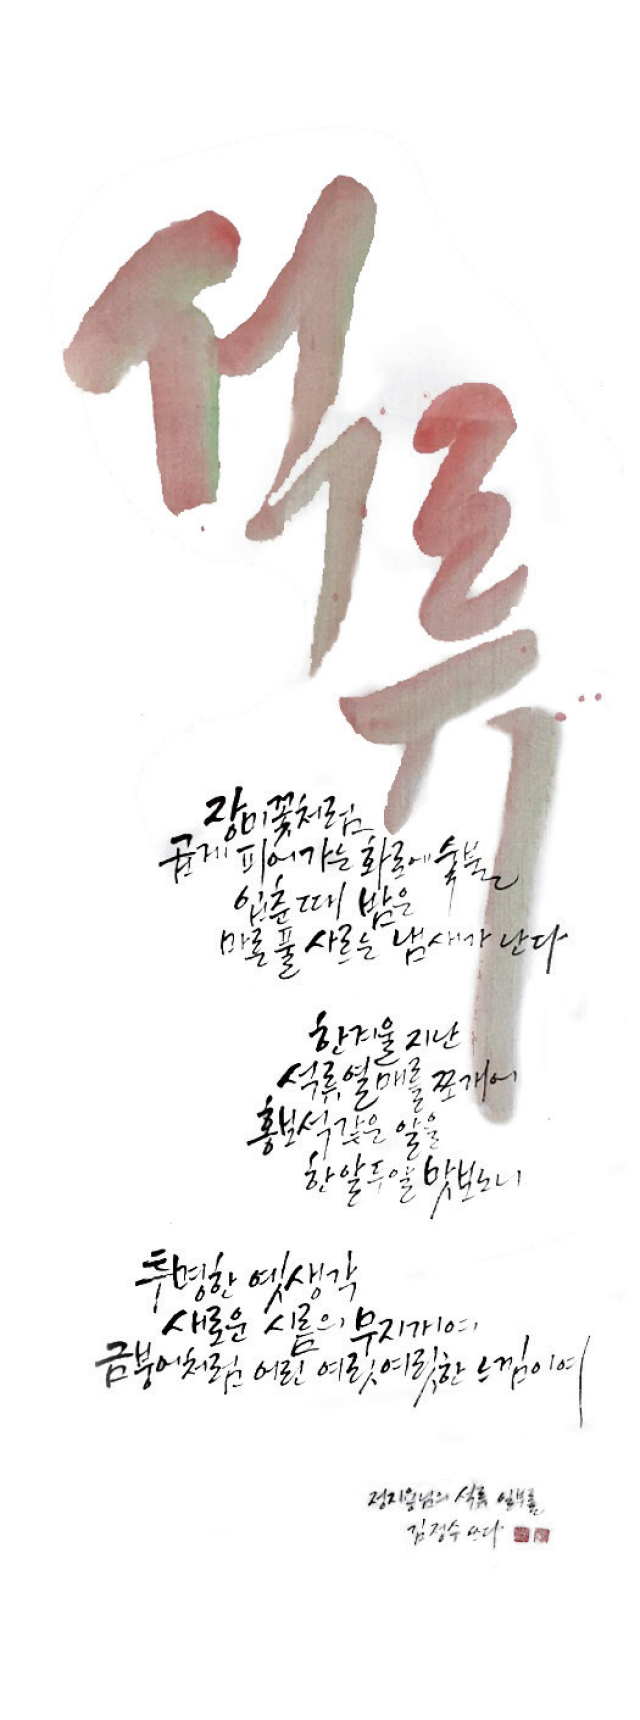 석류
장미꽃처럼
곱게 피어가는 화로에 숯불
입춘 때 밤은
마른 풀 사르는 냄새가 난다
한겨울 지난
석류열매를 쪼개어
홍보석 같은 알을
한 알 두 알 맛보노니
투명한 옛생각
새로운 시름의 무지개여
금붕어처럼 어린 여릿여릿한 느낌이여
정지용님의 석류 일부를
김정수 쓰다